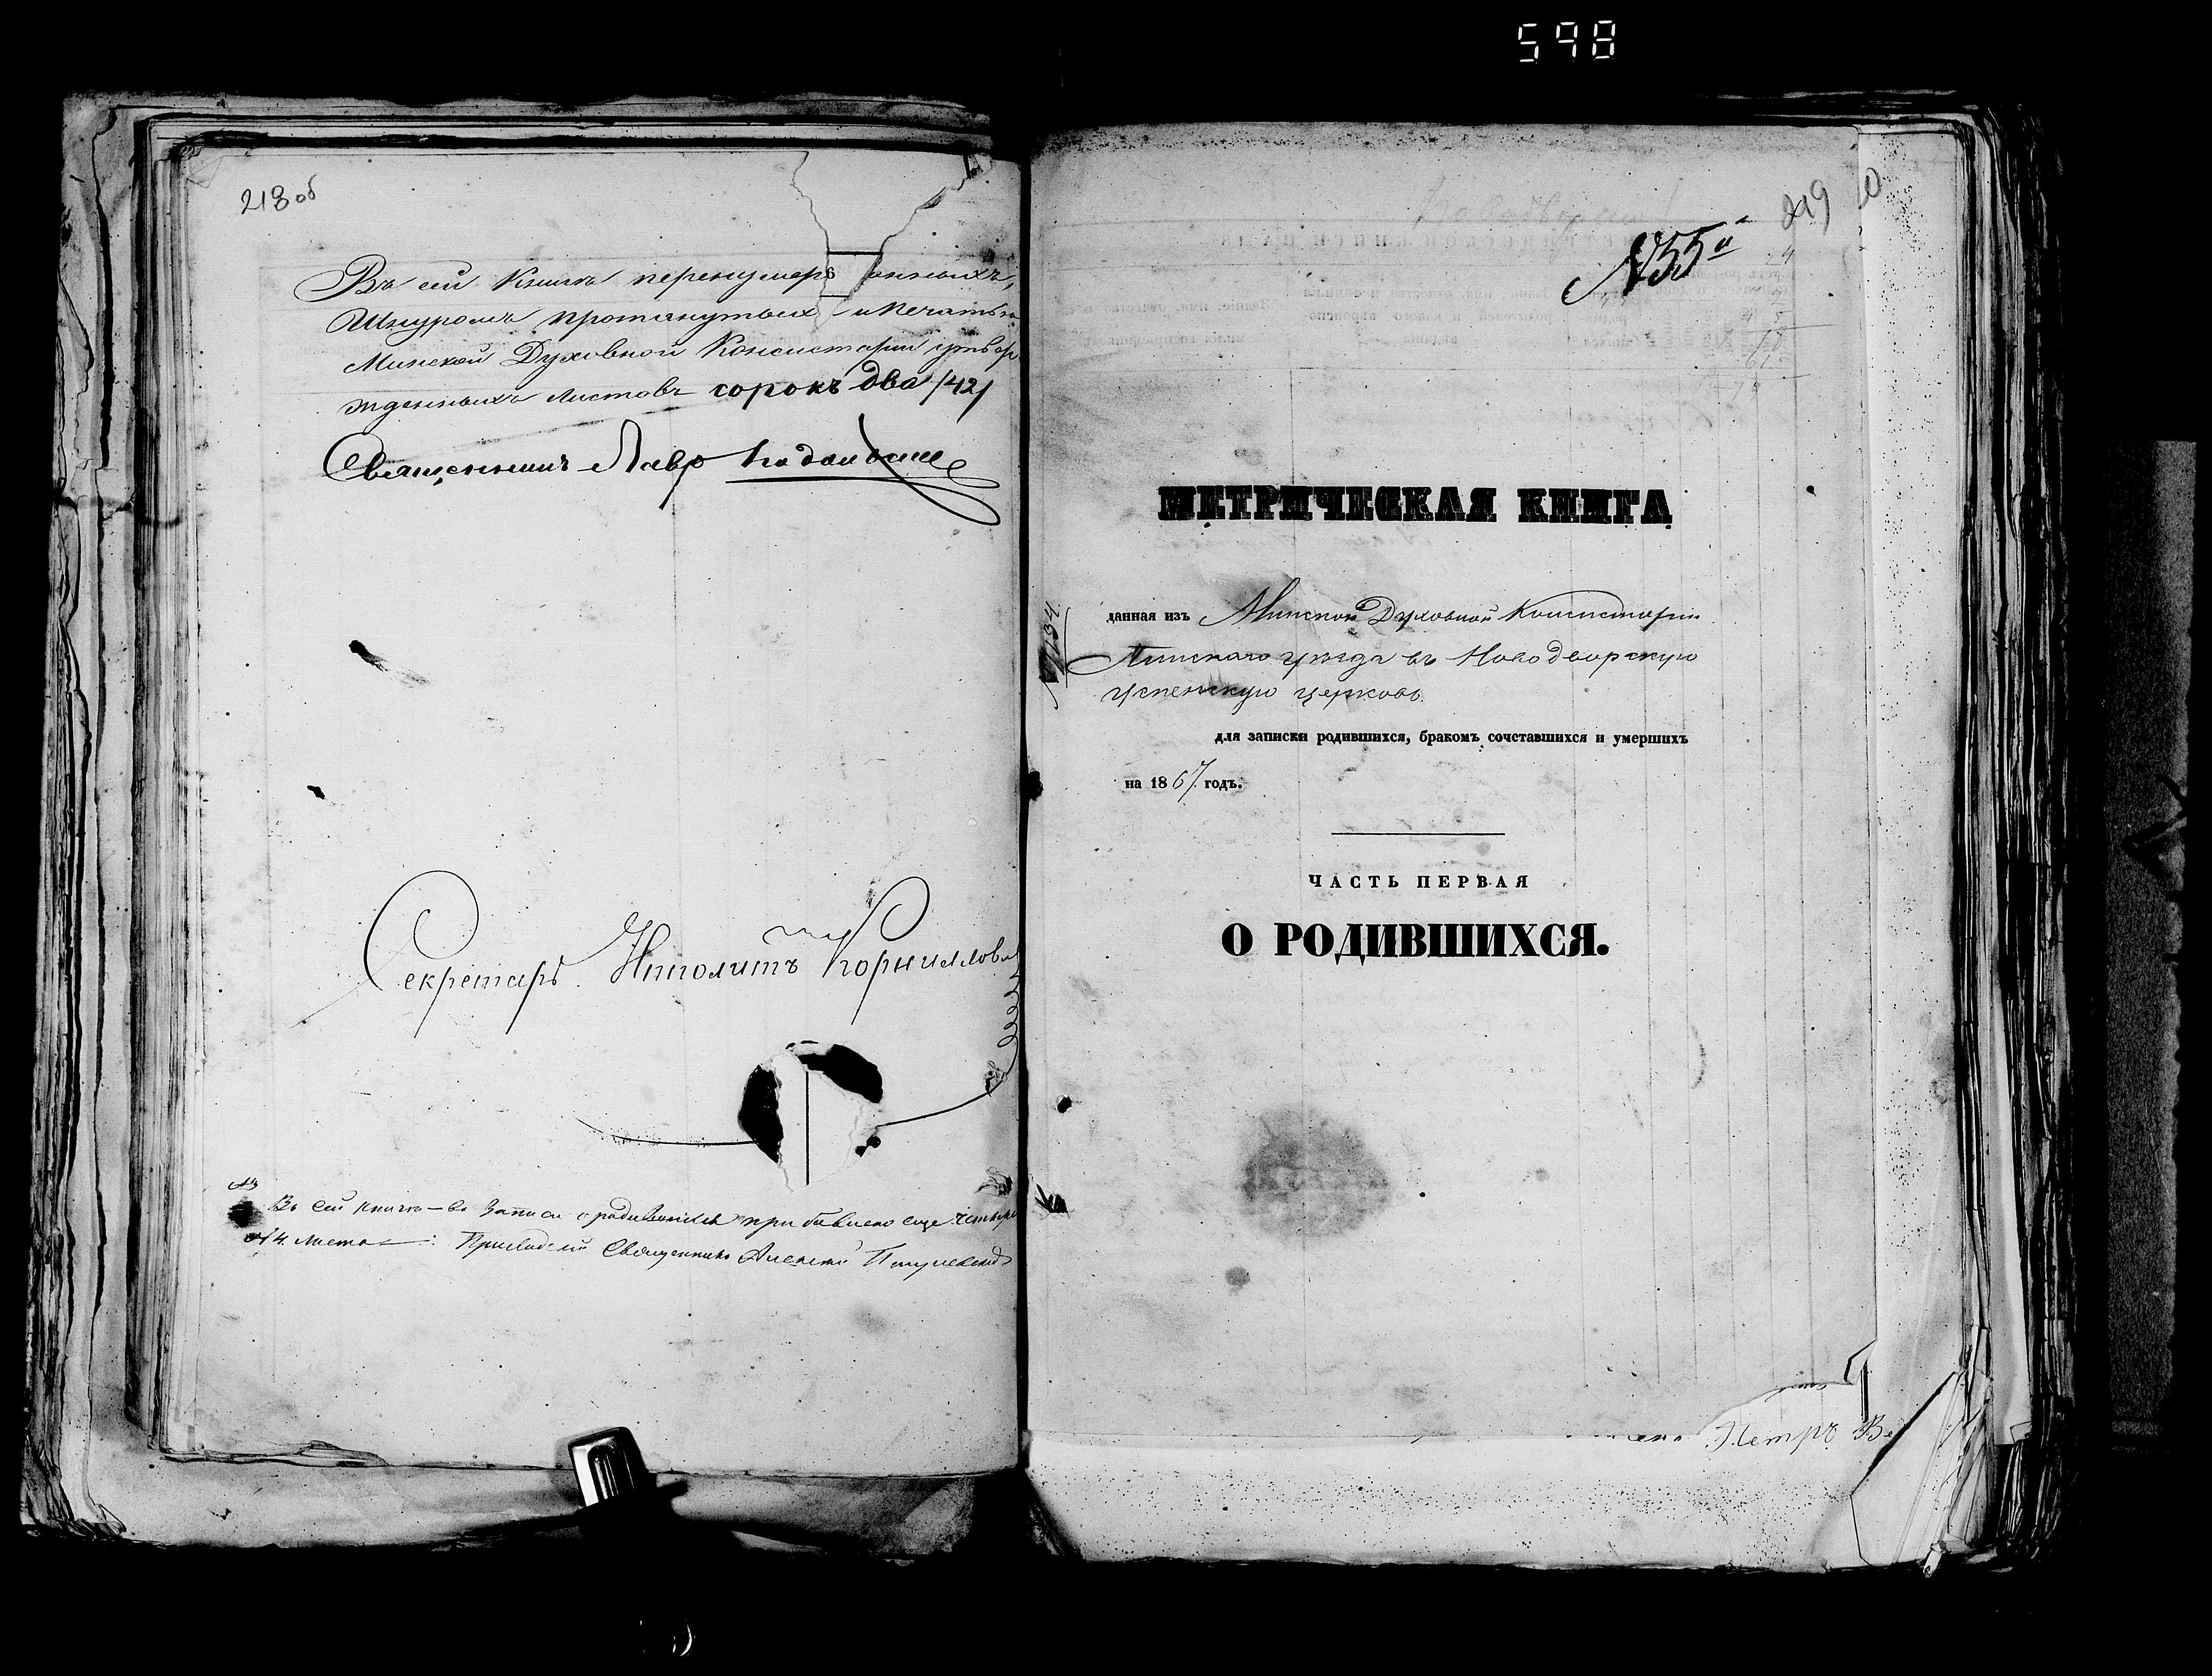 598
218 об
Въ сей Книгѣ перенумерованныхъ,
Шнуромъ протянутыхъ и печатью
Минской Духовной Консисторіи утвер
жденныхъ листовъ сорокъ два /42/
Священникъ Лавръ
Секретарь Ипполитъ Корниловъ
Въ сей книгѣ – въ записи о родившихся прибавлено еще четыре
4 листа Священникъ Алексѣй
219
№ 55й
МЕТРИЧЕСКАЯ КНИГА
данная изъ Минской Духовной Консисторіи
Пинскаго уѣзда въ Новодворскую
Успенскую церковь
для записки родившихся, бракомъ сочетавшихся и умершихъ
на 1867 годъ.
ЧАСТЬ ПЕРВАЯ
О РОДИВШИХСЯ.
Петръ Ве